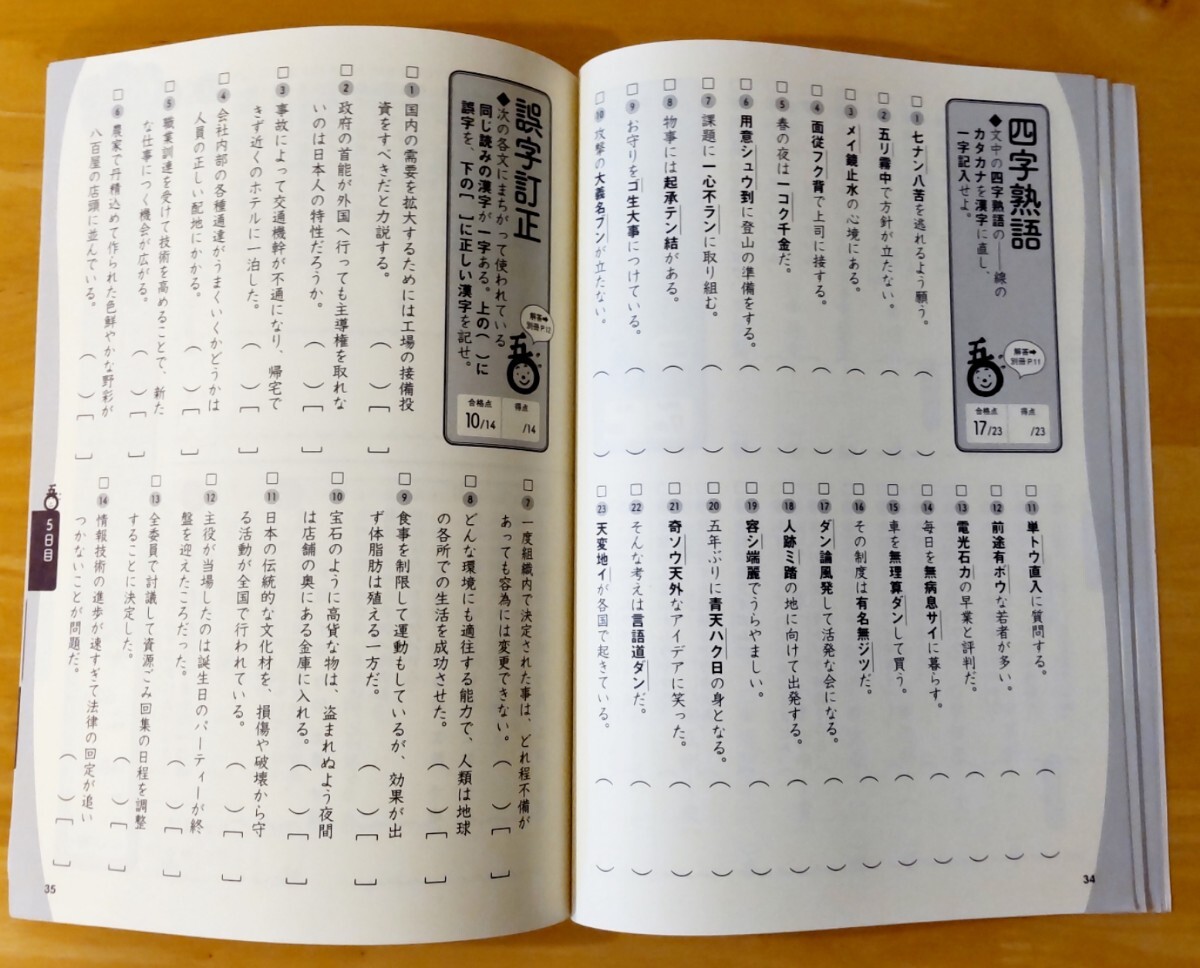 四字熟語
◆文中の四字熟語の――線の
カタカナを漢字に直し、
一字記入せよ。
解答➡
別冊P.11
合格点
17/23
得点
/23
□ 1 七ナン八苦を逃れるよう願う。（　）
□ 2 五リ霧中で方針が立たない。（　）
□ 3 メイ鏡止水の心境にある。（　）
□ 4 面従フク背で上司に接する。（　）
□ 5 春の夜は一コク千金だ。（　）
□ 6 用意シュウ到に登山の準備をする。（　）
□ 7 課題に一心不ランに取り組む。（　）
□ 8 物事には起承テン結がある。（　）
□ 9 お守りをゴ生大事につけている。（　）
□ 10 攻撃の大義名ブンが立たない。（　）
□ 11 単トウ直入に質問する。（　）
□ 12 前途有ボウな若者が多い。（　）
□ 13 電光石カの早業と評判だ。（　）
□ 14 毎日を無病息サイに暮らす。（　）
□ 15 車を無理算ダンして買う。（　）
□ 16 その制度は有名無ジツだ。（　）
□ 17 ダン論風発して活発な会になる。（　）
□ 18 人跡ミ踏の地に向けて出発する。（　）
□ 19 容シ端麗でうらやましい。（　）
□ 20 五年ぶりに青天ハク日の身となる。（　）
□ 21 奇ソウ天外なアイデアに笑った。（　）
□ 22 そんな考えは言語道ダンだ。（　）
□ 23 天変地イが各国で起きている。（　）
34
誤字訂正
◆次の各文にまちがって使われている
同じ読みの漢字が一字ある。上の（　）に
誤字を、下の［　］に正しい漢字を記せ。
解答➡
別冊P.12
合格点
10/14
得点
/14
□ 1 国内の需要を拡大するためには工場の接備投
資をすべきだと力説する。（　）［　］
□ 2 政府の首能が外国へ行っても主導権を取れな
いのは日本人の特性だろうか。（　）［　］
□ 3 事故によって交通機幹が不通になり、帰宅で
きず近くのホテルに一泊した。（　）［　］
□ 4 会社内部の各種通達がうまくいくかどうかは
人員の正しい配地にかかる。（　）［　］
□ 5 職業訓連を受けて技術を高めることで、新た
な仕事につく機会が広がる。（　）［　］
□ 6 農家で丹精込めて作られた色鮮やかな野彩が
八百屋の店頭に並んでいる。（　）［　］
□ 7 一度組織内で決定された事は、どれ程不備が
あっても容為には変更できない。（　）［　］
□ 8 どんな環境にも適往する能力で、人類は地球
の各所での生活を成功させた。（　）［　］
□ 9 食事を制限して運動もしているが、効果が出
ず体脂肪は殖える一方だ。（　）［　］
□ 10 宝石のように高貨な物は、盗まれぬよう夜間
は店舗の奥にある金庫に入れる。（　）［　］
□ 11 日本の伝統的な文化材を、損傷や破壊から守
る活動が全国で行われている。（　）［　］
□ 12 主役が当場したのは誕生日のパーティーが終
盤を迎えたころだった。（　）［　］
□ 13 全委員で討議して資源ごみ回集の日程を調整
することに決定した。（　）［　］
□ 14 情報技術の進歩が速すぎて法律の回定が追い
つかないことが問題だ。（　）［　］
5日目
35